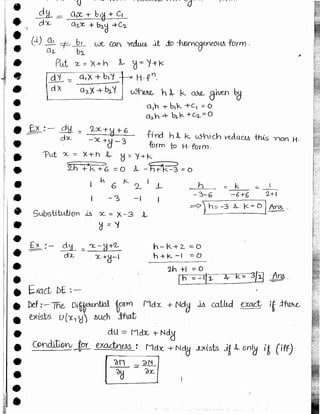 dy/dx = a₁x + b₁y + c₁ / a₂x + b₂y + c₂
(i) a₁/a₂ ≠ b₁/b₂ we can reduce it to homogeneous form.
Put x = X+h & y = Y+k
dY/dX = a₁X + b₁Y / a₂X + b₂Y → H.fⁿ.
where h & k are given by
a₁h + b₁k + c₁ = 0
a₂h + b₂k + c₂ = 0
Ex :- dy/dx = 2x+y+6 / -x+y-3 find h & k which reduces this non H. form to H. form.
Put x = X+h & y = Y+k
2h + k + 6 = 0 & -h+k-3 = 0
h k 1
1 6 2 1
1 -3 -1 1
h/-3-6 = k/-6+6 = 1/2+1
⇒ h = -3 & k = 0 Ans.
Substitution is x = X-3 &
y = Y
Ex :- dy/dx = x-y+2 / x+y-1
h-k+2 = 0
h+k-1 = 0
2h +1 = 0
h = -1/2 & k = 3/2 Ans.
Exact DE :-
Def :- The Differential form Mdx + Ndy is called exact if there
exists U(x,y) such that
dU = Mdx + Ndy
Condition for exactness : Mdx + Ndy exists if & only if (iff)
∂M/∂y = ∂N/∂x